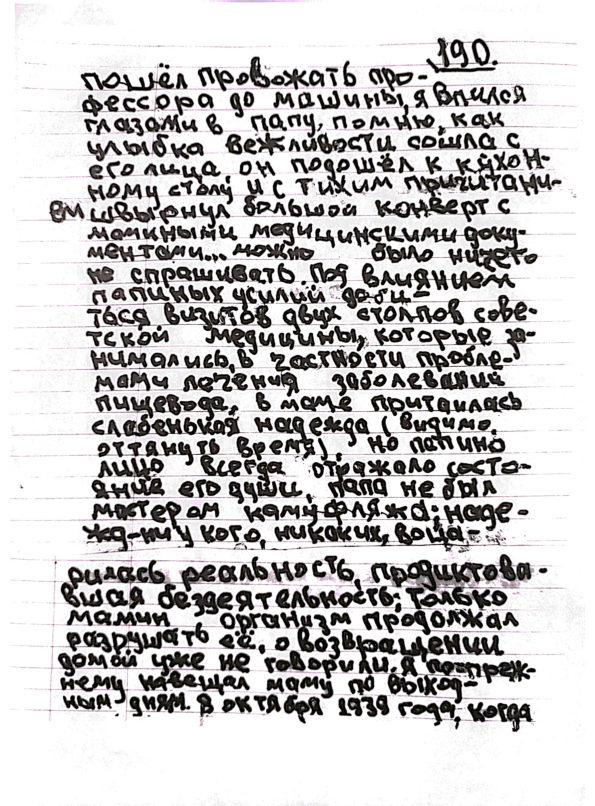 190.
пошёл провожать про-
фессора до машины, я впился
глазами в папу, помню, как
улыбка вежливости сошла с
его лица, он подошёл к кухон-
ному столу и с тихим причитани-
ем швырнул большой конверт с
мамиными медицинскими доку-
ментами... можно было ничего
не спрашивать. Под влиянием
папиных усилий доби-
ться визитов двух столпов сове-
тской медицины, которые за-
нимались, в частности пробле-
мами лечения заболеваний
пищевода, в маме притаилась
слабенькая надежда (видимо,
оттянуть время), но папино
лицо всегда отражало состо-
яние его души, папа не был
мастером камуфляжа; наде-
жд-ни у кого, никаких, воца-
рилась реальность, продиктова-
вшая бездеятельность; только
мамин организм продолжал
разрушать её, о возвращении
домой уже не говорили. Я по-преж-
нему навещал маму по выход-
ным дням. В октября 1939 года, когда